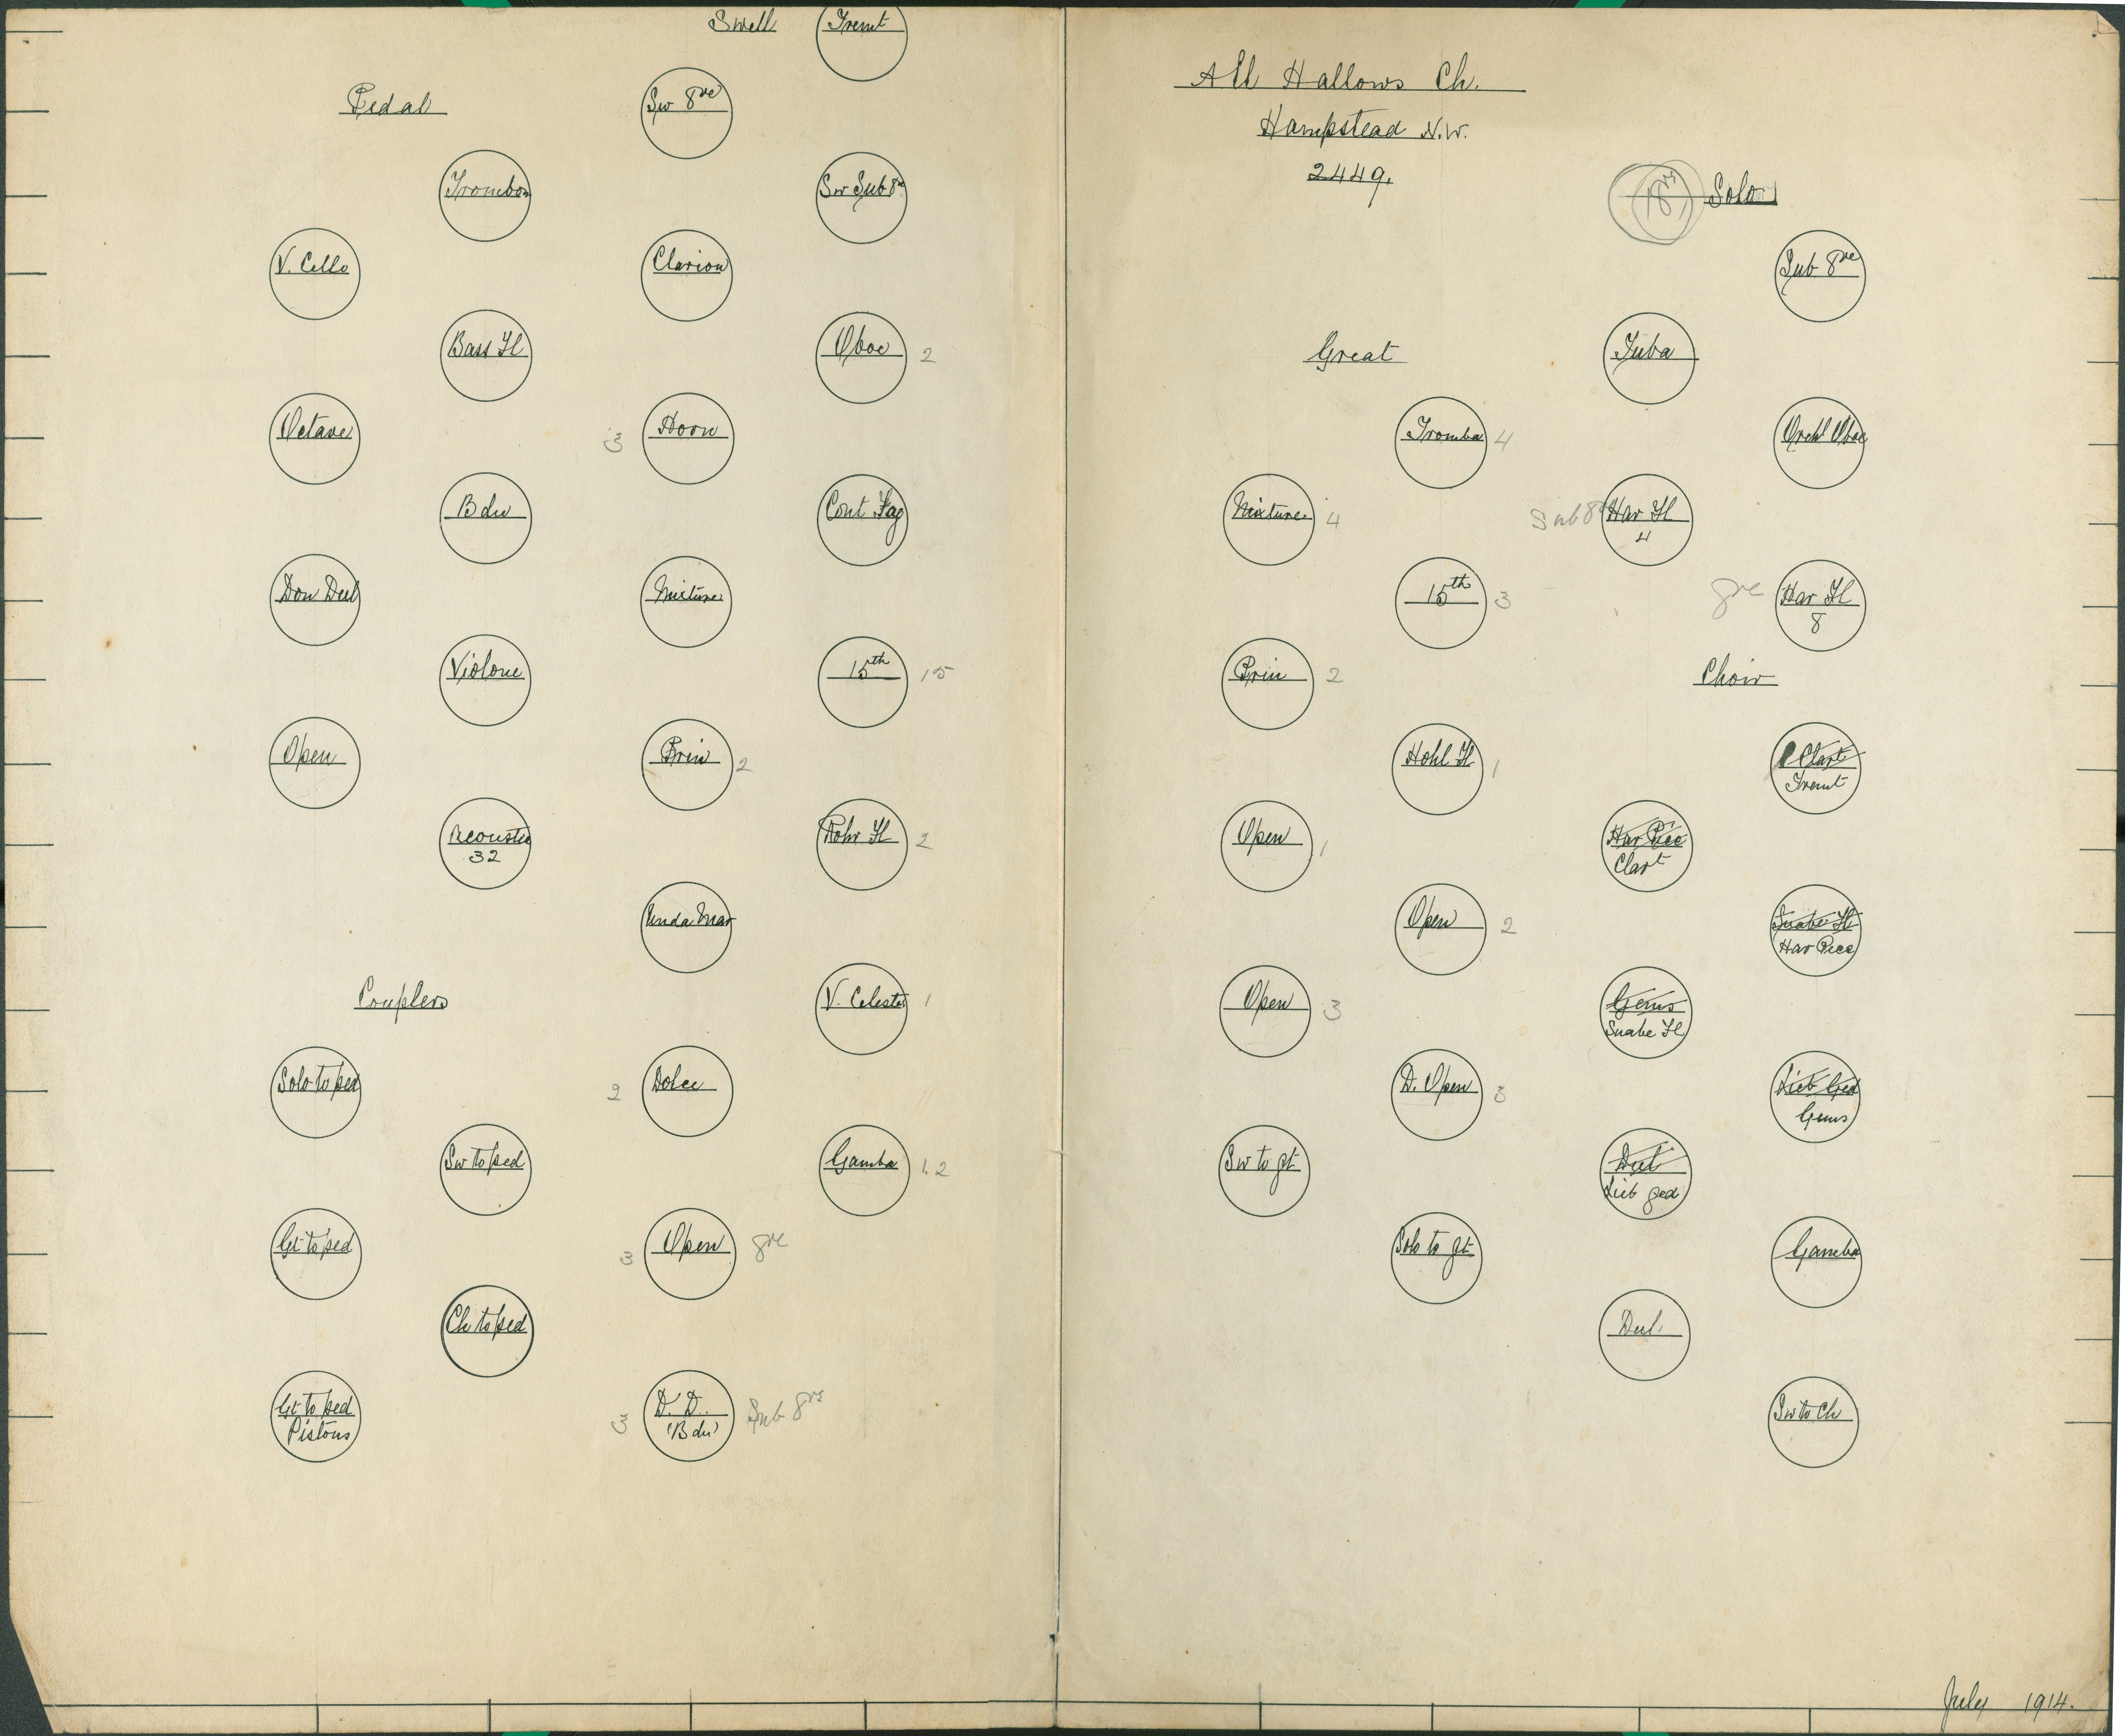 Swell
Tremt
Pedal
Sw 8ve
Trombon
Sw Sub 8ve
V. Cello
Clarion
Bass Fl
Oboe 2
Octave
3 Horn
Bdn
Cont Fag
Don Dul
Mixture
Violone
15th 15
Open
Prin 2
Acoustic
32
Rohr Fl 2
Unda Mar
Couplers
V. Celestes 1
Solo to ped
2 Dolce
Sw to ped
Gamba 1.2
Gt to ped
3 Open 8ve
Ch to ped
Gt to ped
Pistons
3 D. D.
(Bdn)
Sub 8ve
All Hallows Ch.
Hampstead N.W.
2449.
8ve
Solo
Sub 8ve
Great
Tuba
Tromba 4
Orchl Oboe
Mixture 4
Sub 8ve Har Fl
4
15th 3
8ve Har Fl
8
Prin 2
Choir
Hohl Fl 1
Clart
Tremt
Open 1
Har Picc
Clart
Open 2
Suabe Fl
Har Picc
Open 3
Gems
Suabe Fl
D. Open 3
Lieb Ged
Gems
Sw to gt
Dul
Lieb ged
Solo to gt
Gamba
Dul
Sw to Ch
July 1914.